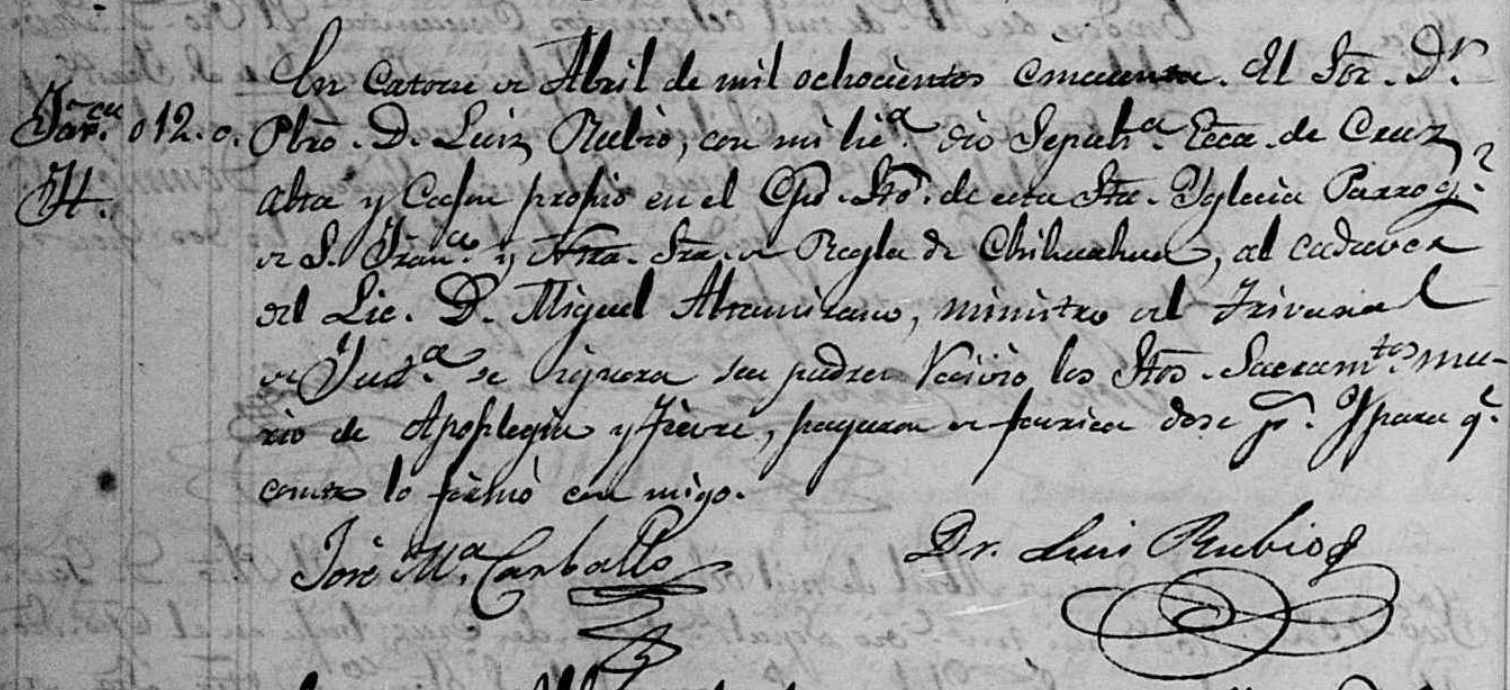 En catorce de Abril de mil ochocientos cincuenta. El Sor. Dr.
012.0. Pbro. D. Luiz Rubio, con mi lica. dio Sepulta. Ecca. de Cruz
H. alta y Cajon propio en el Cpo. Sto. de esta Sta. Yglecia Parroql.
de S. Franco. y Ntra. Sra. de Regla de Chihuahua, al cadaver
del Lic. D. Miguel Altamirano, ministro del Trivunal
de Justa. se ignora sus padres Recivió los Stos. Sacramtos. mu-
rio de Apoplegia y fievre, pagaron de favrica dose ps. Y para q.
conste lo firmó con migo.
José Ma. Carballo Dr. Luis Rubio